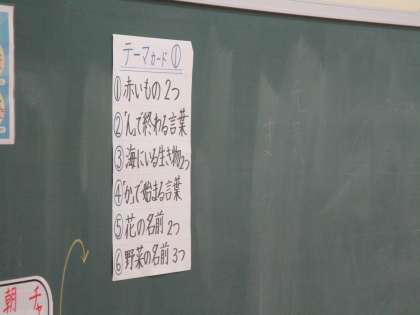 テーマカード①
①赤いもの 2つ
②「ん」で終わる言葉
③海にいる生き物2つ
④「か」で始まる言葉
⑤花の名前 2つ
⑥野菜の名前 3つ
朝 チ